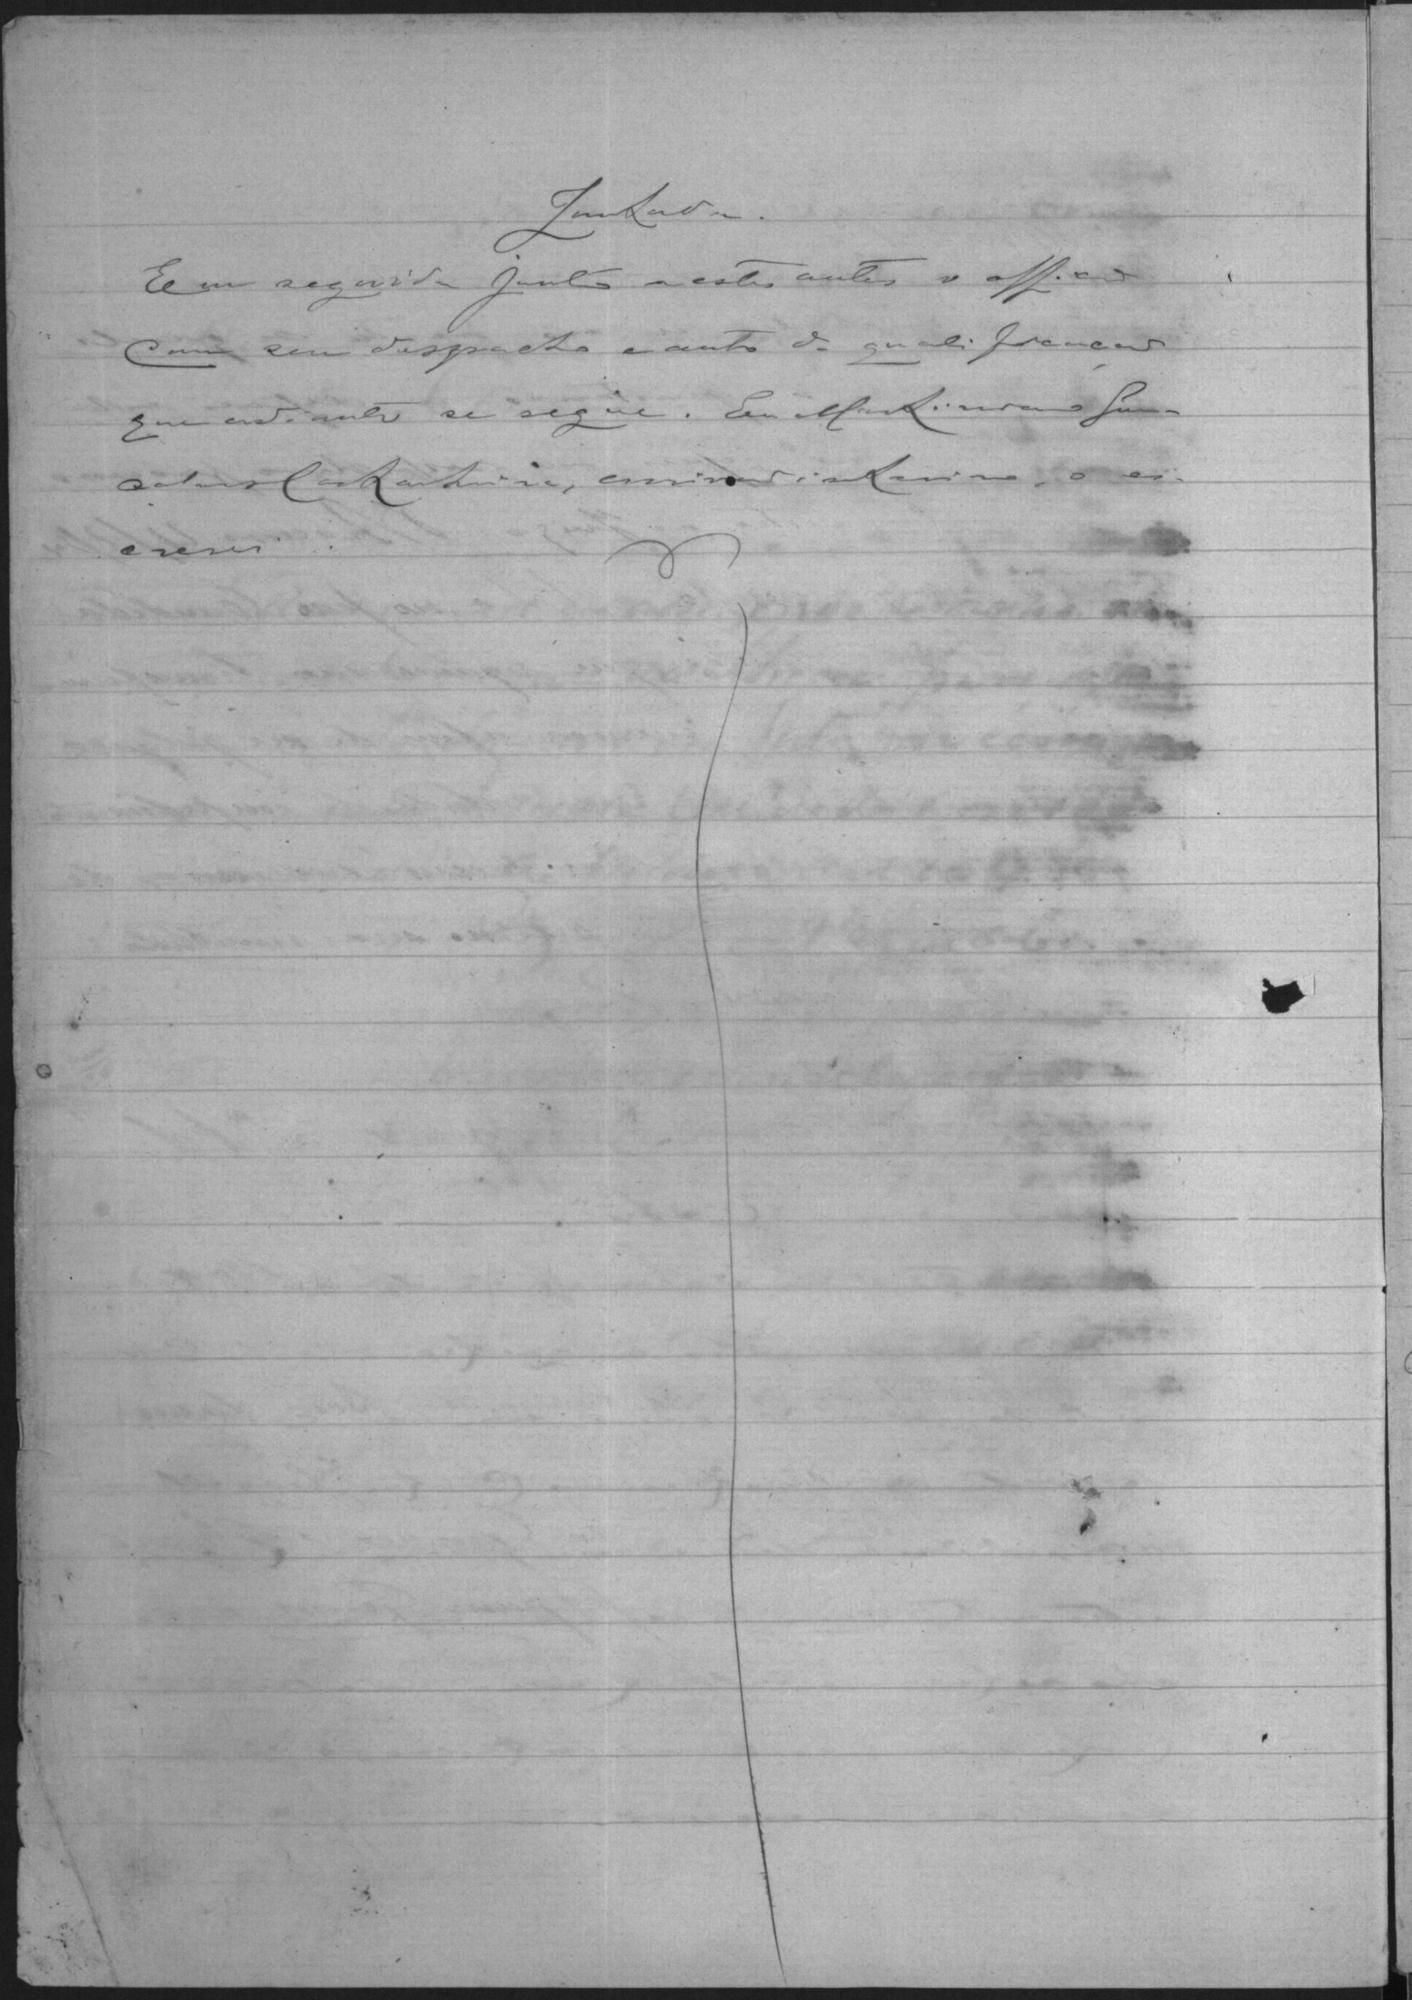 Juntada.
Em seguida junto a estes autos o officio
com seu despacho e auto de qualificação
que adiante se segue. Eu Martiniano Gon-
salves, escrivão interino, o es-
crevi.